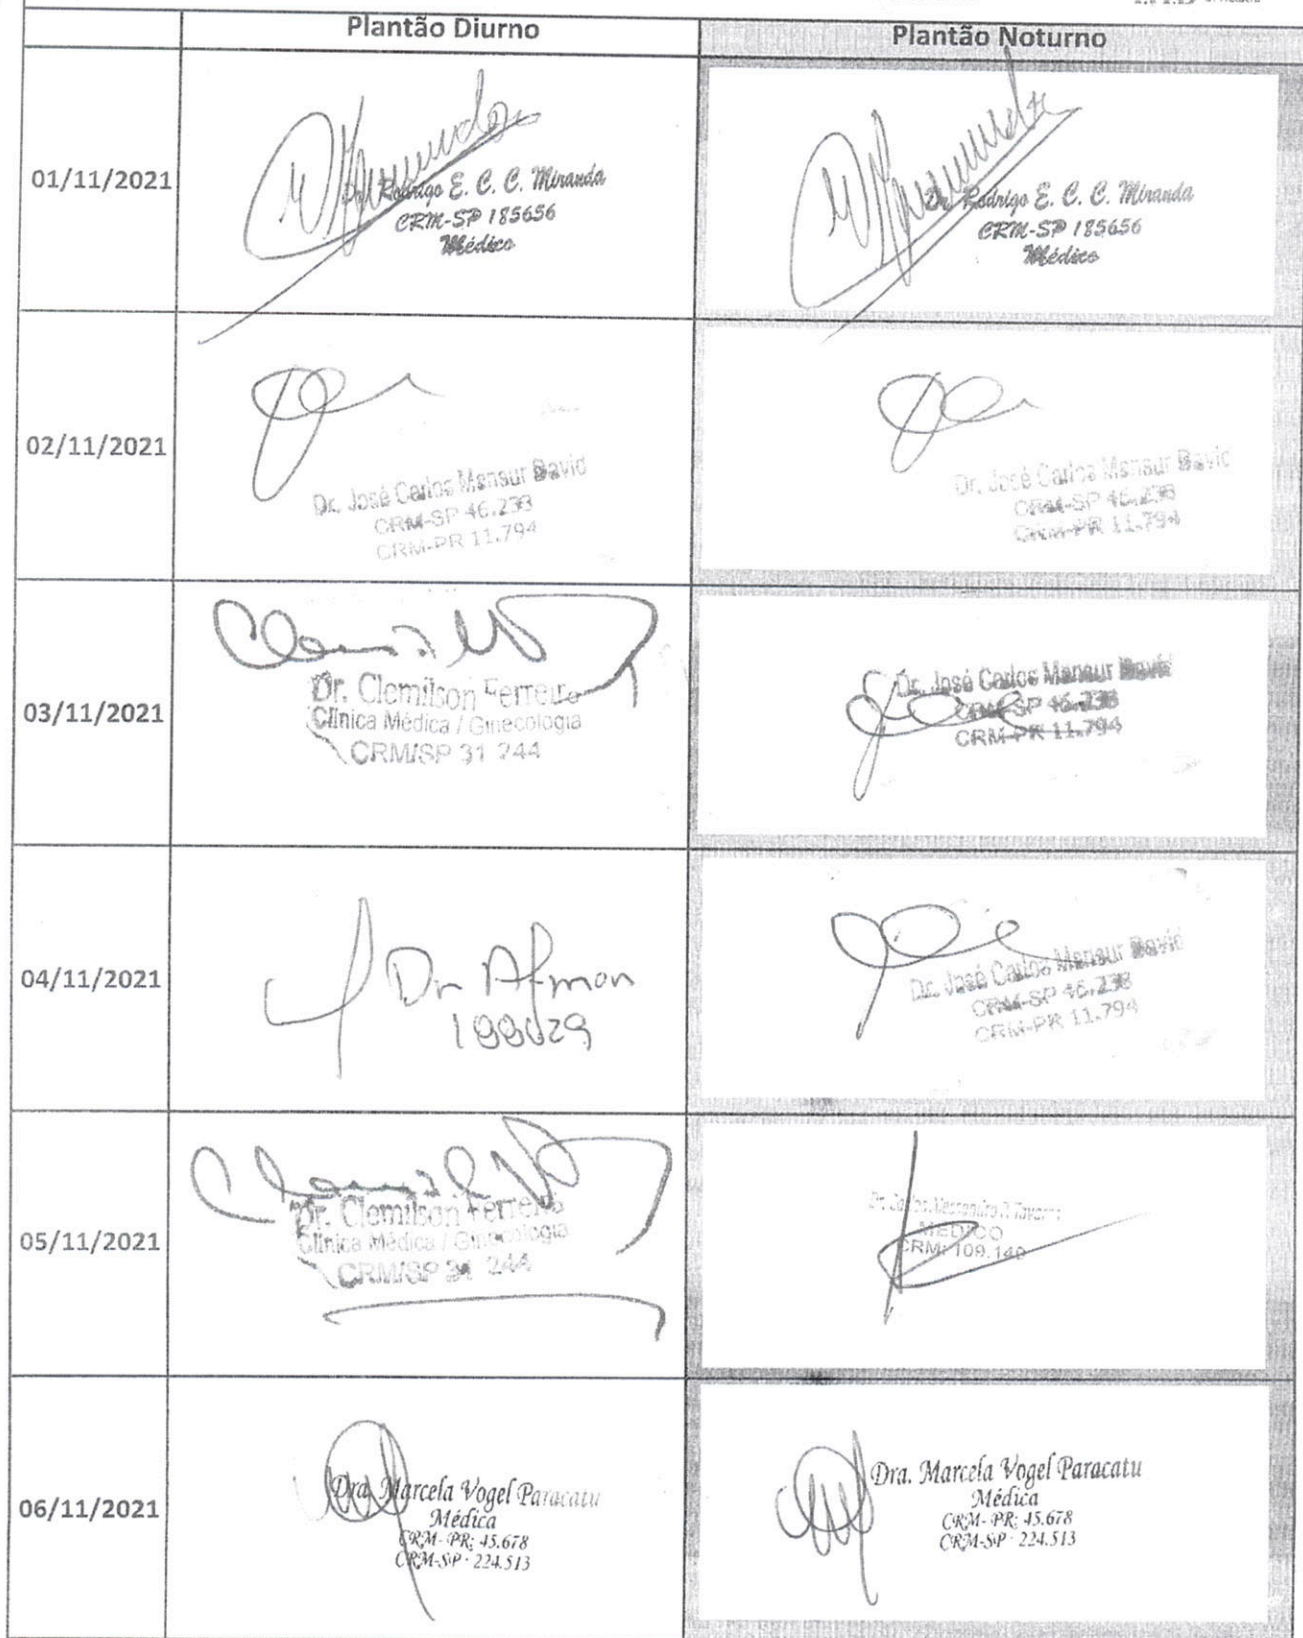 Plantão Diurno
Plantão Noturno
01/11/2021
Dr. Rodrigo E. C. C. Miranda
CRM-SP 185656
Médico
Dr. Rodrigo E. C. C. Miranda
CRM-SP 185656
Médico
02/11/2021
Dr. José Carlos Mansur David
CRM-SP 46.238
CRM-PR 11.794
Dr. José Carlos Mansur David
CRM-SP 46.238
CRM-PR 11.794
03/11/2021
Dr. Clemilson Ferreira
Clínica Médica / Ginecologia
CRM/SP 31 244
Dr. José Carlos Mansur David
CRM-SP 46.238
CRM-PR 11.794
04/11/2021
Dr
Dr. José Carlos Mansur David
CRM-SP 46.238
CRM-PR 11.794
05/11/2021
Dr. Clemilson Ferreira
Clínica Médica / Ginecologia
CRM/SP 31 244
MEDICO
CRM: 109.140
06/11/2021
Dra. Marcela Vogel Paracatu
Médica
CRM-PR: 45.678
CRM-SP · 224.513
Dra. Marcela Vogel Paracatu
Médica
CRM-PR: 45.678
CRM-SP · 224.513